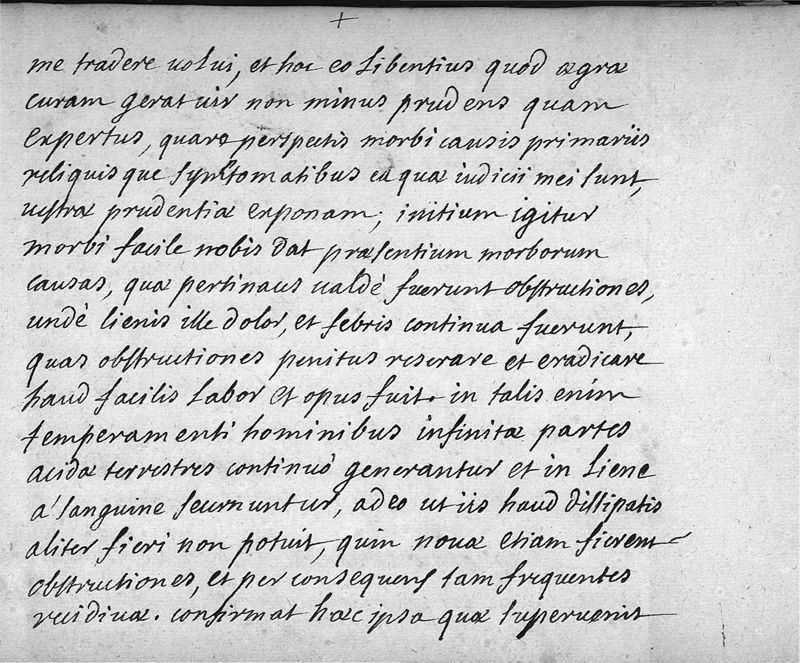 +
me tradere volui, et hoc eo libentius quod ægræ
curam gerat uir non minus prudens quam
expertus, quare perspectis morbi causis primariis
reliquisque symtomatibus ea quæ iudicii mei sunt,
vestræ prudentiæ exponam; initium igitur
morbi facile nobis dat præsentium morborum
causas, quæ pertinaces ualdè fuerunt obstructiones,
undè lienis ille dolor, et febris continua fuerunt,
quas obstructiones penitus reserare et eradicare
haud facilis labor et opus fuit. in talis enim
temperamenti hominibus infinitæ partes
acidæ terrestres continuò generantur et in liene
à sanguine secernuntur, adeo ut iis haud dissipatis
aliter fieri non potuit, quin nouæ etiam fierent
obstructiones, et per consequens tam frequentes
recidiuæ. confirmat hæc ipsa quæ superuenit